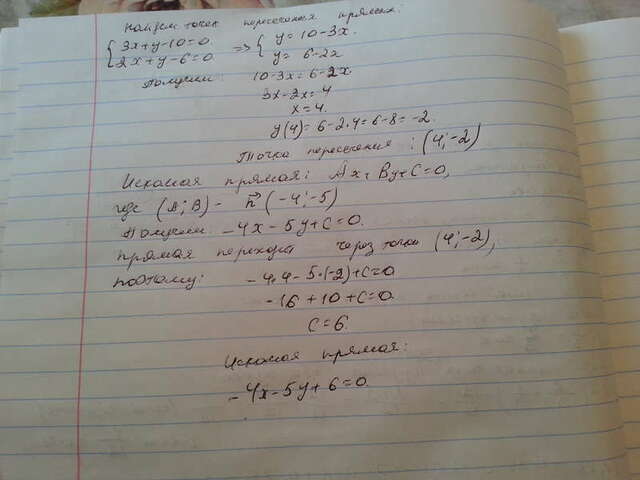 Найдем точку пересечения прямых:
{ 3x+y-10=0. => { y = 10-3x.
2x+y-6=0 y = 6-2x
Получим: 10-3x=6-2x
3x-2x=4
x=4.
y(4)=6-2·4=6-8=-2.
Точка пересечения: (4;-2)
Искомая прямая: Ax+By+C=0,
где (A;B) - n⃗(-4;-5)
Получим: -4x-5y+C=0.
прямая переходит через точки (4;-2),
поэтому: -4·4-5·(-2)+C=0
-16+10+C=0.
C=6.
Искомая прямая:
-4x-5y+6=0.